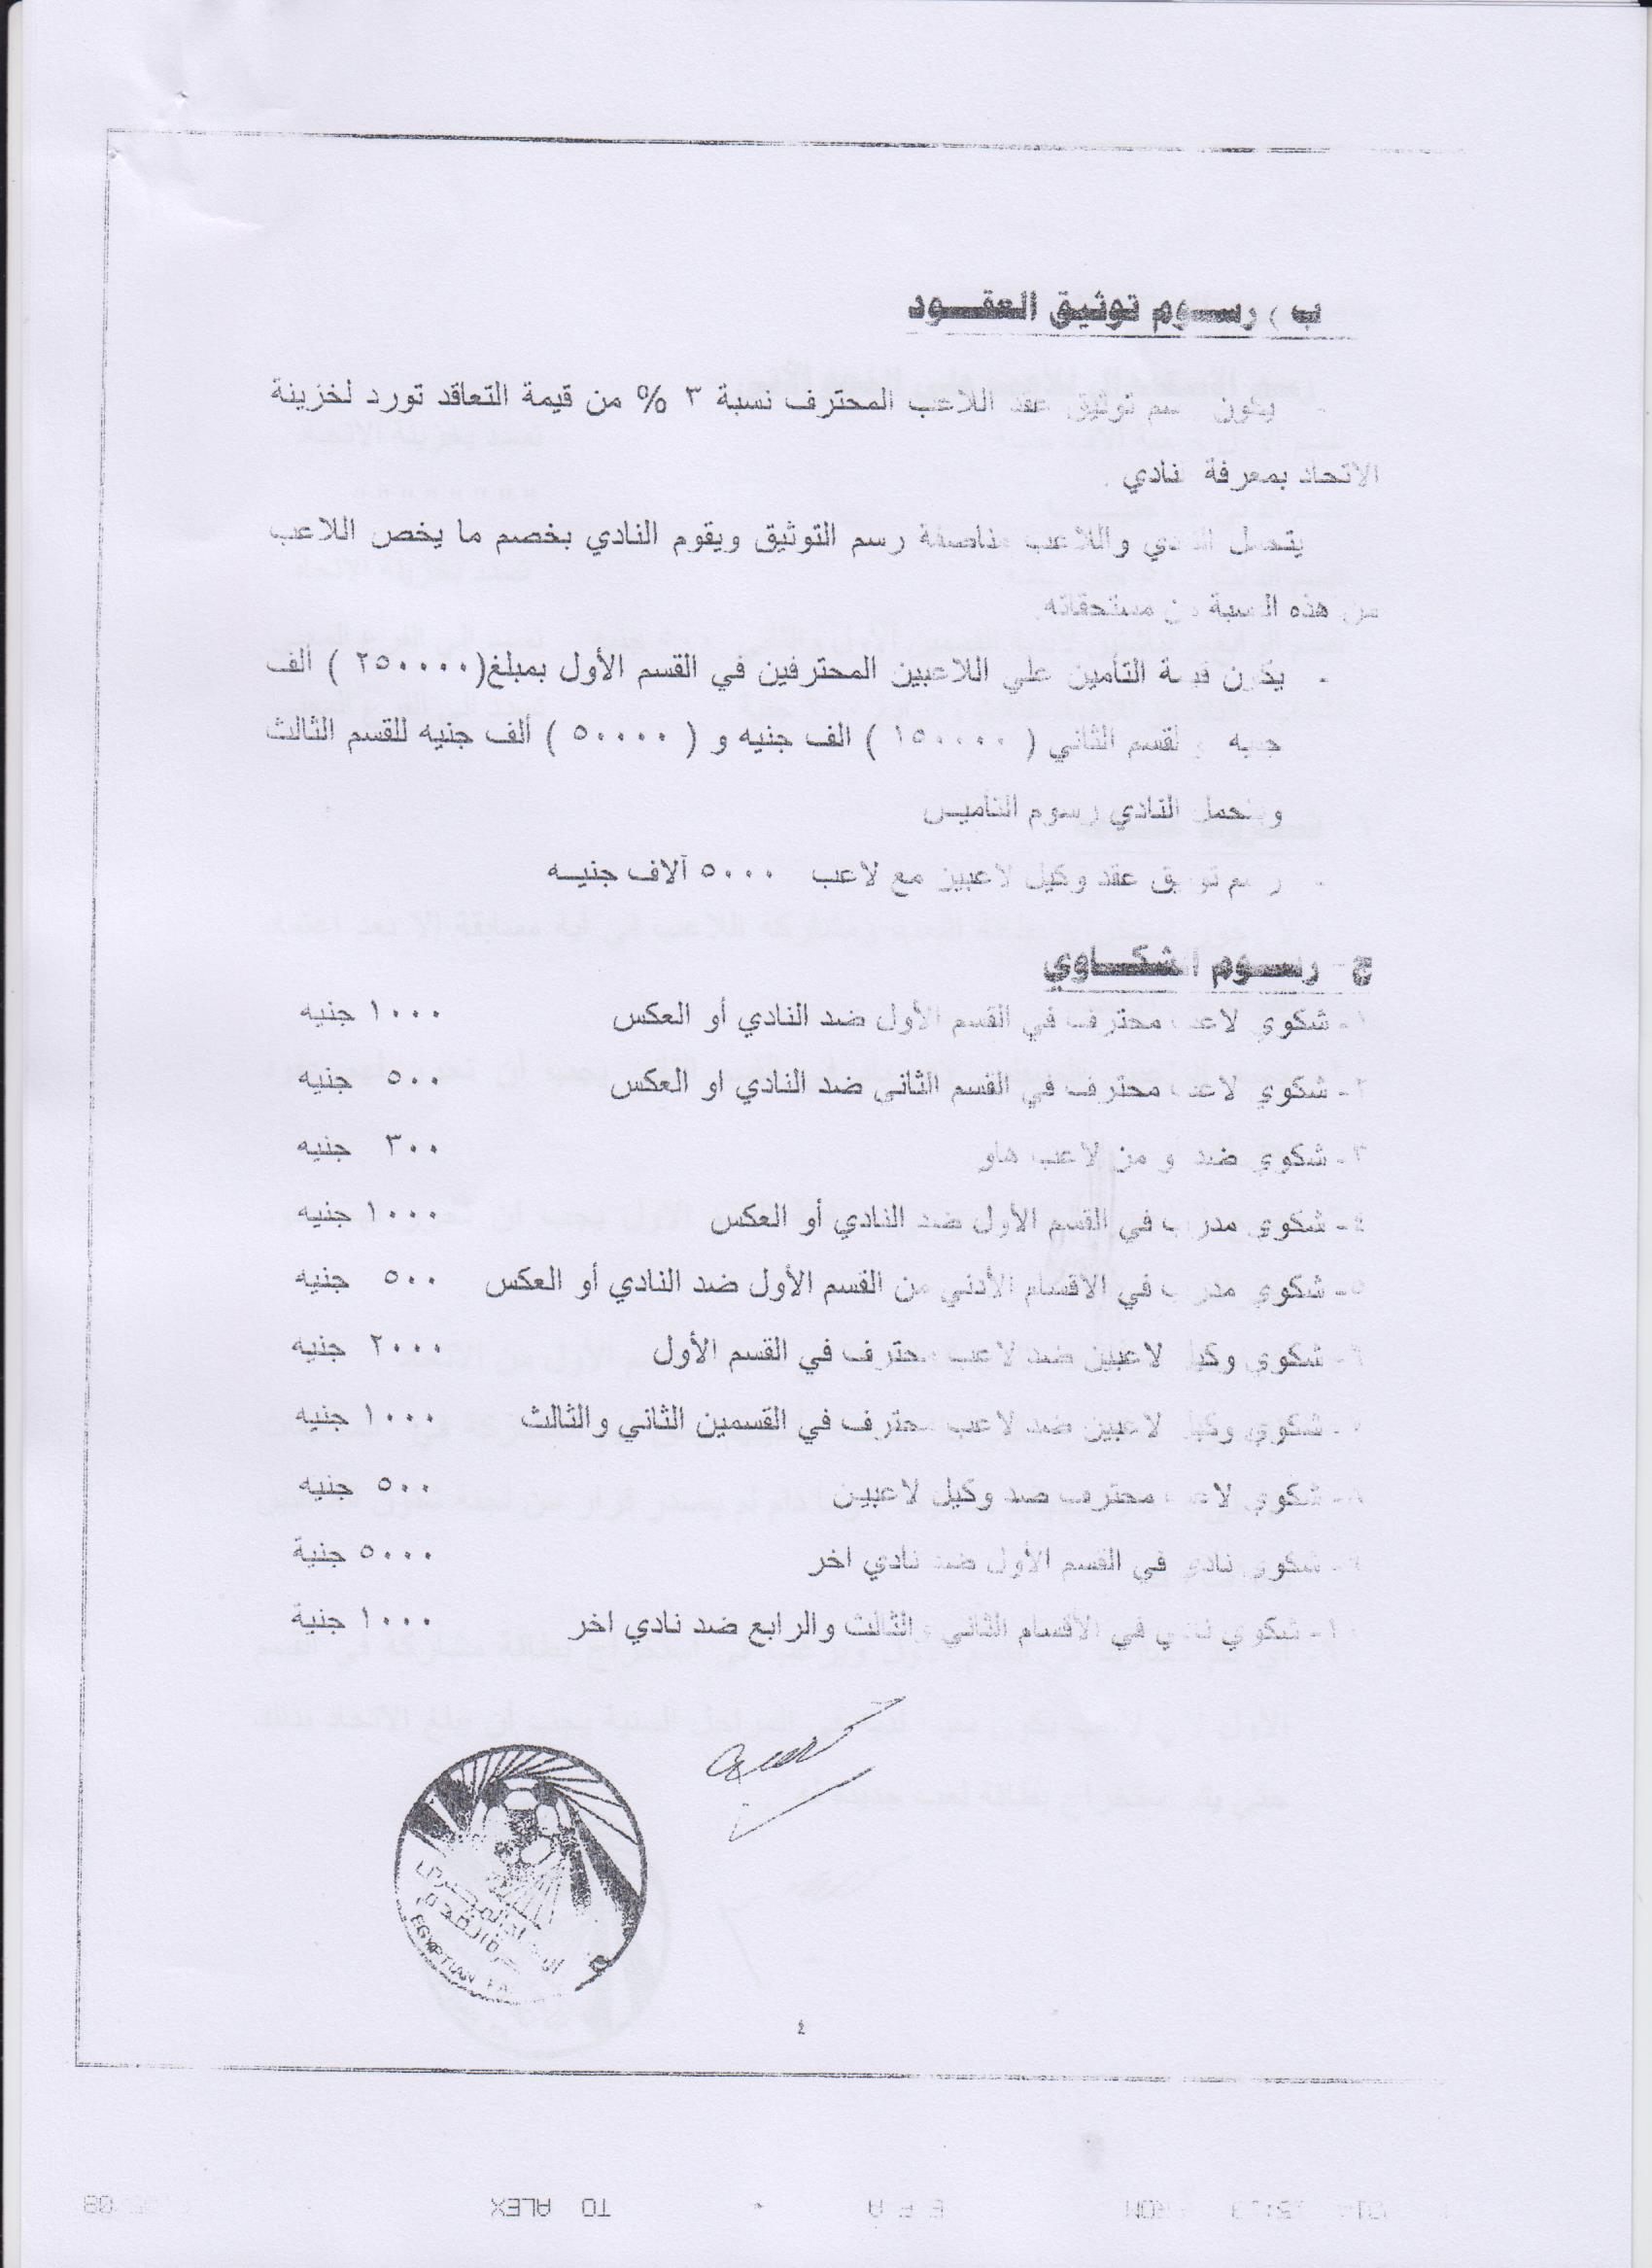 ب ) رســوم توثيق العقـــود
يكون رسم توثيق عقد اللاعب المحترف نسبة ٣ % من قيمة التعاقد تورد لخزينة
الاتحاد بمعرفة النادي .
يتحمل النادي واللاعب مناصفة رسم التوثيق ويقوم النادي بخصم ما يخص اللاعب
من هذه النسبة من مستحقاته
- يكون قيمة التأمين علي اللاعبين المحترفين في القسم الأول بمبلغ(٢٥٠٠٠٠ ) ألف
جنيه والقسم الثاني ( ١٥٠٠٠٠ ) الف جنيه و ( ٥٠٠٠٠ ) ألف جنيه للقسم الثالث
ويتحمل النادي رسوم التأميـن
- رسم توثيق عقد وكيل لاعبين مع لاعب ٥٠٠٠ آلاف جنيـه
ج - رســوم الشكــاوي
١- شكوي لاعب محترف في القسم الأول ضد النادي أو العكس ١٠٠٠ جنيه
٢- شكوي لاعب محترف في القسم الثانى ضد النادي او العكس ٥٠٠ جنيه
٣- شكوي ضد او من لاعب هاو ٣٠٠ جنيه
٤- شكوي مدرب في القسم الأول ضد النادي أو العكس ١٠٠٠ جنيه
٥- شكوي مدرب في الاقسام الأدني من القسم الأول ضد النادي أو العكس ٥٠٠ جنيه
٦- شكوي وكيل لاعبين ضد لاعب محترف في القسم الأول ٢٠٠٠ جنيه
٧- شكوي وكيل لاعبين ضد لاعب محترف في القسمين الثاني والثالث ١٠٠٠ جنيه
٨- شكوي لاعب محترف ضد وكيل لاعبين ٥٠٠ جنيه
٩- شكوي نادي في القسم الأول ضد نادي اخر ٥٠٠٠ جنية
١٠- شكوي نادي في الأقسام الثاني والثالث والرابع ضد نادي اخر ١٠٠٠ جنية
الاتحاد المصرى
لكرة القدم
EGYPTIAN F.A
٤
TO ALEX